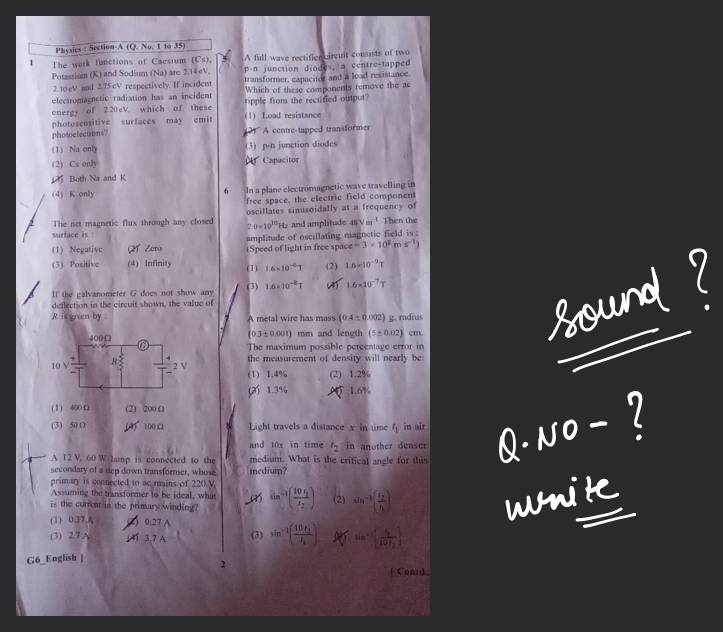 Physics : Section-A (Q. No. 1 to 35)
1 The work functions of Caesium (Cs),
Potassium (K) and Sodium (Na) are 2.14 eV,
2.30 eV and 2.75 eV respectively. If incident
electromagnetic radiation has an incident
energy of 2.20 eV, which of these
photosensitive surfaces may emit
photoelectrons?
(1) Na only
(2) Cs only
(3) Both Na and K
(4) K only
2 The net magnetic flux through any closed
surface is :
(1) Negative (2) Zero
(3) Positive (4) Infinity
If the galvanometer G does not show any
deflection in the circuit shown, the value of
R is given by :
400Ω
G
10 V R 2 V
(1) 400 Ω (2) 200 Ω
(3) 50 Ω (4) 100 Ω
A 12 V, 60 W lamp is connected to the
secondary of a step down transformer, whose
primary is connected to ac mains of 220 V.
Assuming the transformer to be ideal, what
is the current in the primary winding?
(1) 0.37 A (2) 0.27 A
(3) 2.7 A (4) 3.7 A
G6_English ]
2
A full wave rectifier circuit consists of two
p-n junction diodes, a centre-tapped
transformer, capacitor and a load resistance.
Which of these components remove the ac
ripple from the rectified output?
(1) Load resistance
(2) A centre-tapped transformer
(3) p-n junction diodes
(4) Capacitor
6 In a plane electromagnetic wave travelling in
free space, the electric field component
oscillates sinusoidally at a frequency of
2.0×10¹⁰ Hz and amplitude 48 V m⁻¹. Then the
amplitude of oscillating magnetic field is :
(Speed of light in free space = 3 × 10⁸ m s⁻¹)
(1) 1.6×10⁻⁶T (2) 1.6×10⁻⁹T
(3) 1.6×10⁻⁸T (4) 1.6×10⁻⁷T
A metal wire has mass (0.4±0.002) g, radius
(0.3±0.001) mm and length (5±0.02) cm.
The maximum possible percentage error in
the measurement of density will nearly be:
(1) 1.4% (2) 1.2%
(3) 1.3% (4) 1.6%
Light travels a distance x in time t₁ in air
and 10x in time t₂ in another denser
medium. What is the critical angle for this
medium?
(1) sin⁻¹(10 t₁/t₂) (2) sin⁻¹(t₂/t₁)
(3) sin⁻¹(10 t₂/t₁) (4) sin⁻¹(t₁/10 t₂)
[ Contd...
sound ?
Q. NO - ?
write